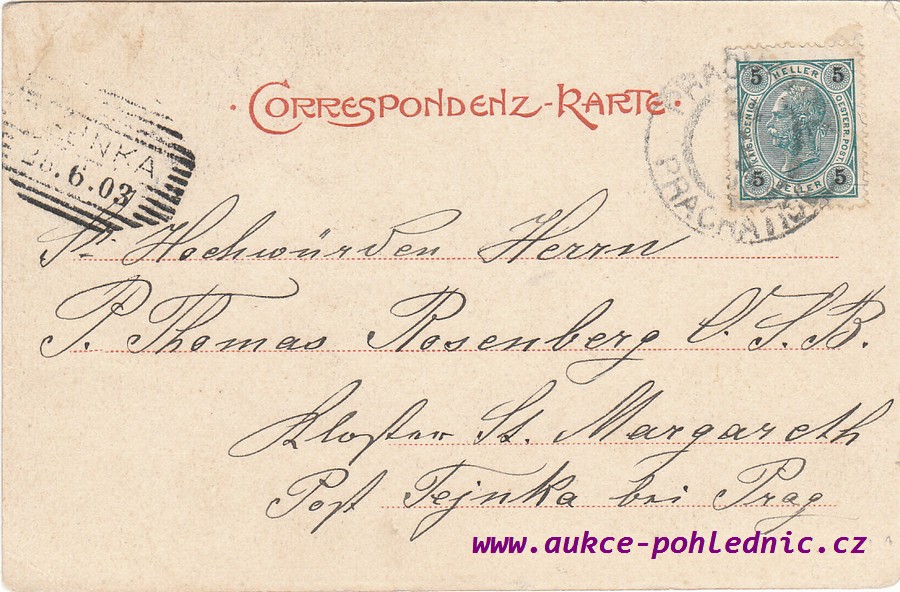 CORRESPONDENZ-KARTE.
5 HELLER 5
KAIS. KOENIGL.
OESTERR. POST.
5 HELLER 5
PRACHATIC
28.6.03
Sr. Hochwürden Herrn
P. Thomas Rosenberg O.S.B.
Kloster St. Margareth
Post Tejnka bei Prag
www.aukce-pohlednic.cz